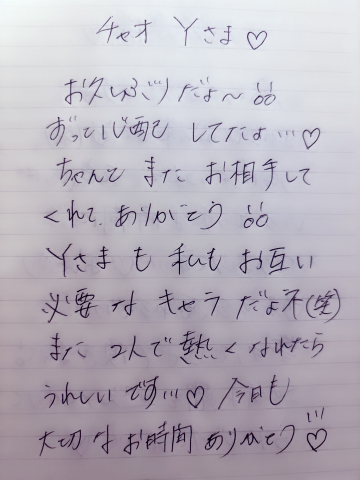 チャオ Yさま♡
お久しぶりだよ〜!!
ずっと心配してたよ…♡
ちゃんと また お相手して
くれて、ありがとう!!
Yさま も 私も お互い
必要な キャラ だよネ(笑)
また 2人で 熱く なれたら
うれしい です…♡ 今日も
大切な お時間 ありがとう!!!♡